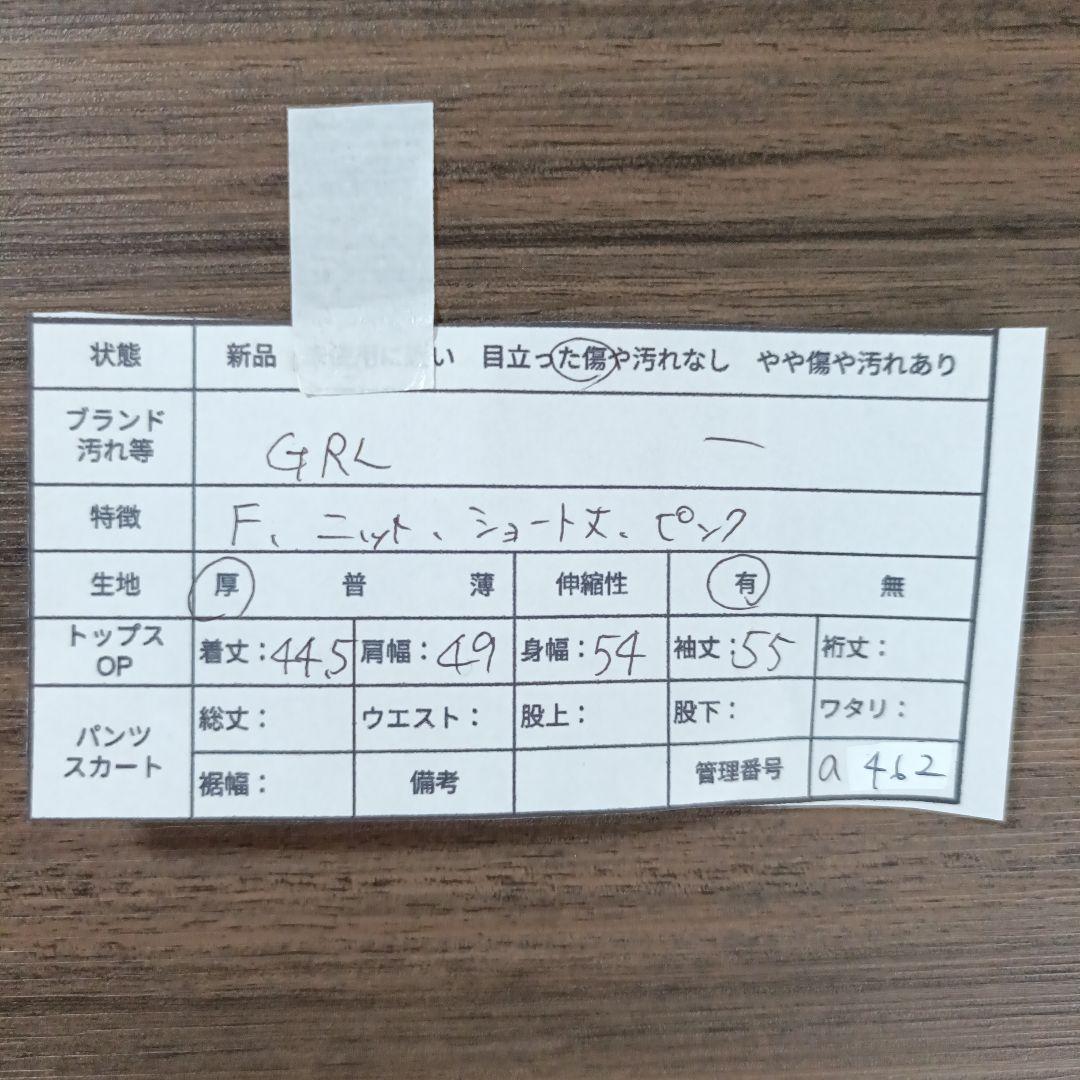 状態 新品 未使用に近い 目立った傷や汚れなし やや傷や汚れあり
ブランド
汚れ等 GRL ー
特徴 F、ニット、ショート丈、ピンク
生地 厚 普 薄 伸縮性 有 無
トップス
OP 着丈：44.5 肩幅：49 身幅：54 袖丈：55 裄丈：
パンツ
スカート 総丈： ウエスト： 股上： 股下： ワタリ：
裾幅： 備考 管理番号 a 462